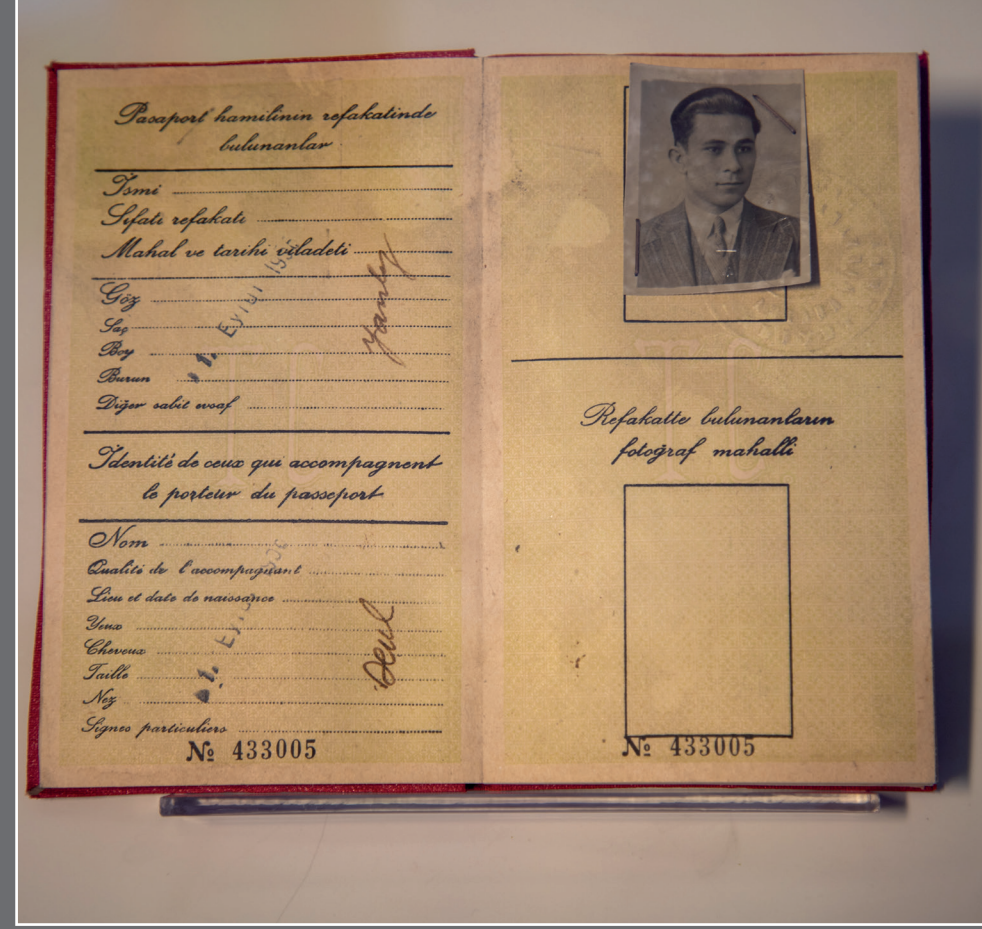 Pasaport hamilinin refakatinde
bulunanlar
İsmi
Sıfatı refakatı
Mahal ve tarihi viladeti
Göz
Saç
Boy
Burun
Diğer sabit evsaf
1. Eylül
Identité de ceux qui accompagnent
le porteur du passeport
Nom
Qualité de l'accompagnant
Lieu et date de naissance
Yeux
Cheveux
Taille
Nez
Signes particuliers
Seul
№ 433005
TC
Refakatte bulunanların
fotoğraf mahalli
№ 433005